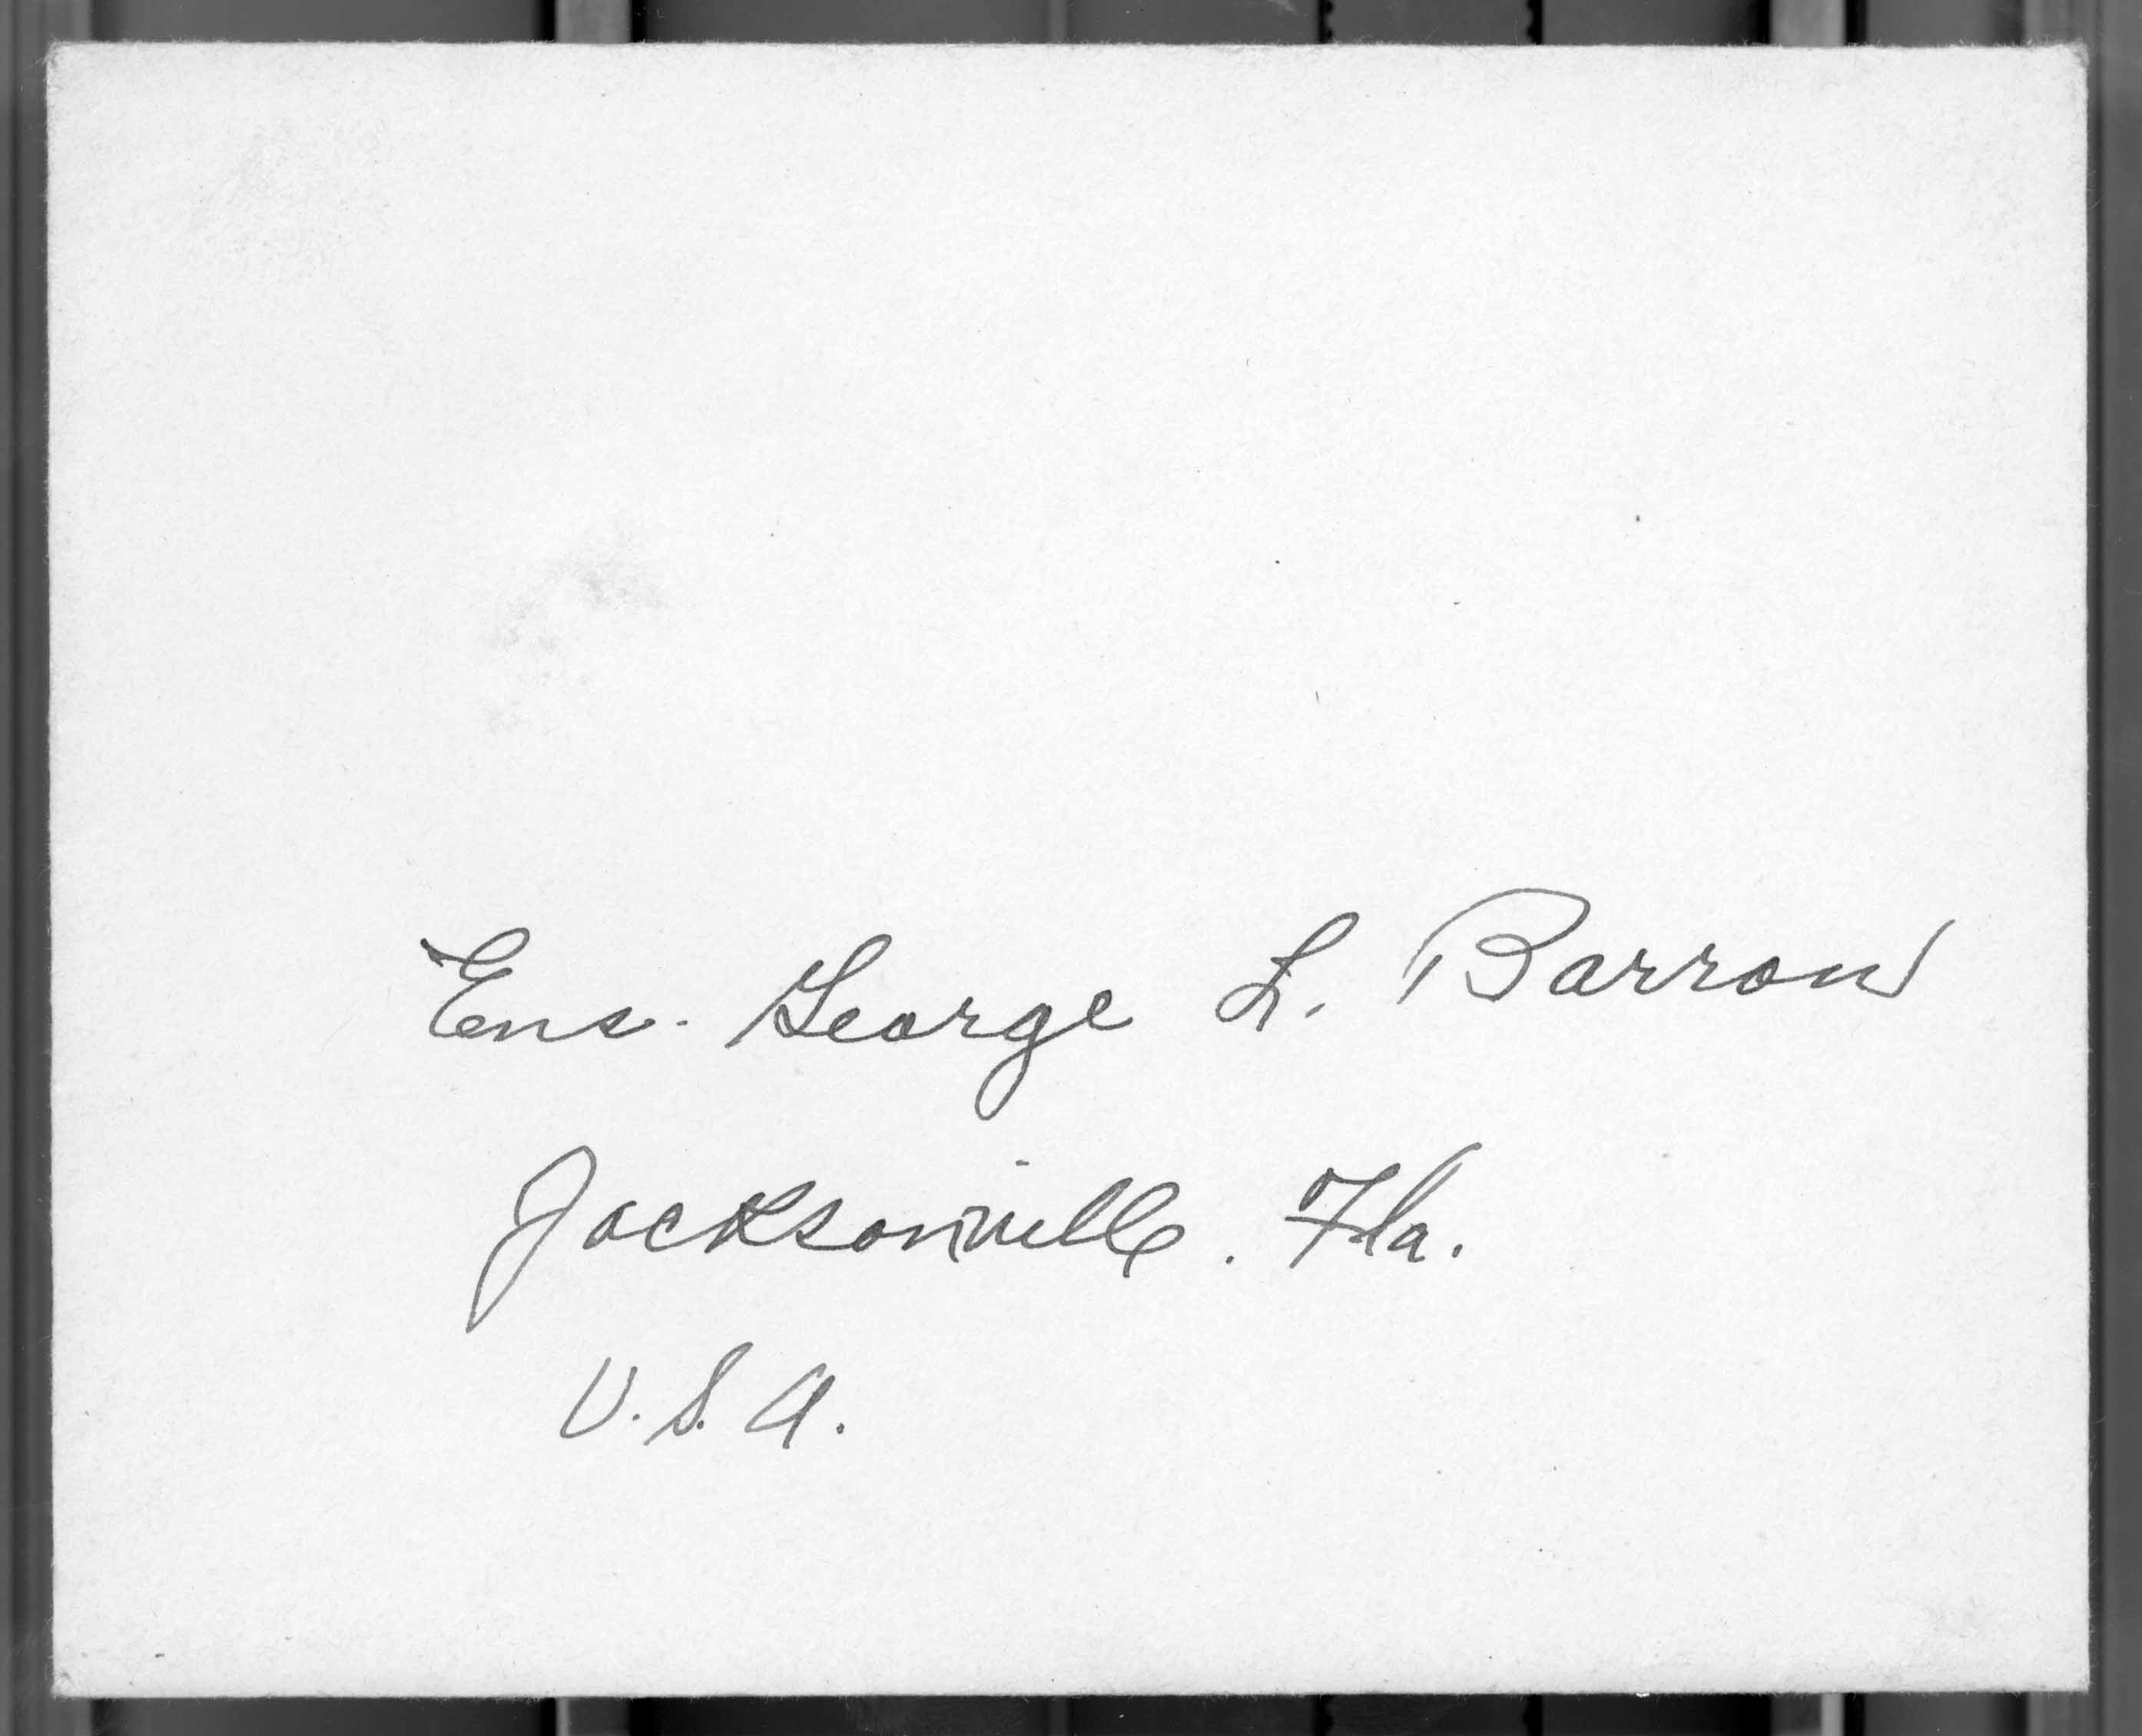 Ens. George L. Barrow
Jacksonville. Fla.
U.S.A.